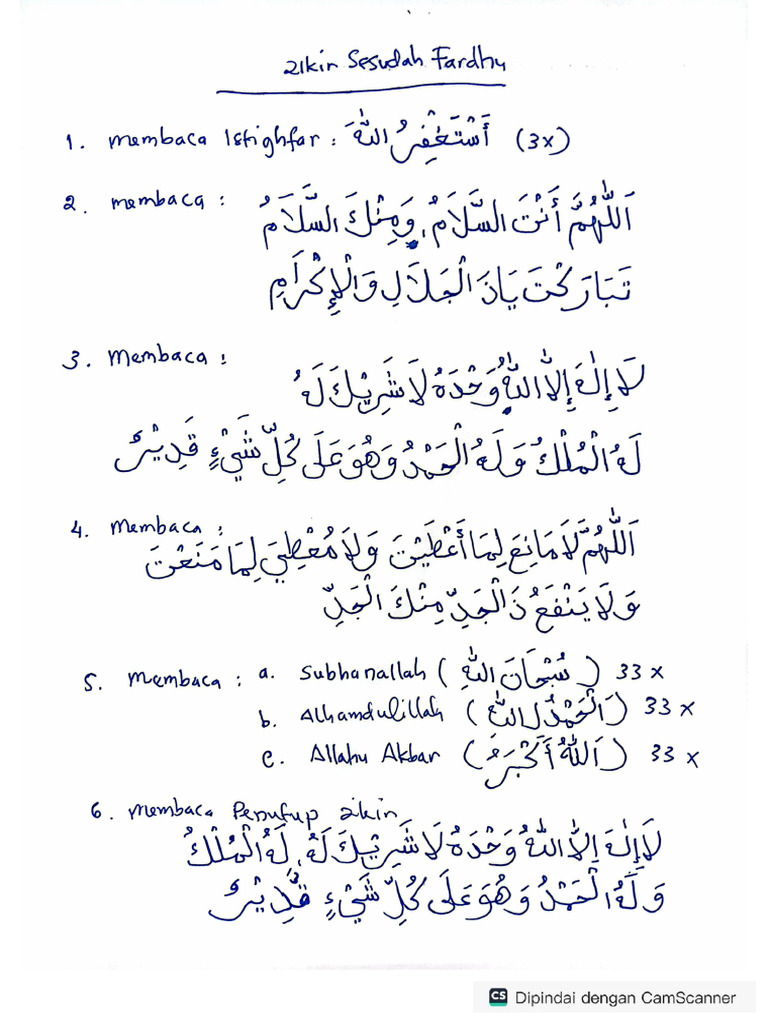 Zikir Sesudah Fardhu
1. Membaca Istighfar : أَسْتَغْفِرُ اللهَ (3x)
2. Membaca :
اَللّٰهُمَّ أَنْتَ السَّلَامُ، وَمِنْكَ السَّلَامُ
تَبَارَكْتَ يَاذَ الْجَلَالِ وَالْإِكْرَامِ
3. Membaca :
لَا إِلٰهَ إِلَّا اللهُ وَحْدَهُ لَا شَرِيْكَ لَهُ
لَهُ الْمُلْكُ وَلَهُ الْحَمْدُ وَهُوَ عَلَى كُلِّ شَيْءٍ قَدِيْرٌ
4. Membaca :
اَللّٰهُمَّ لَا مَانِعَ لِمَا أَعْطَيْتَ وَلَا مُعْطِيَ لِمَا مَنَعْتَ
وَلَا يَنْفَعُ ذَالْجَدِّ مِنْكَ الْجَدِّ
5. Membaca : a. Subhanallah (سُبْحَانَ اللهِ) 33 x
b. Alhamdulillah (اَلْحَمْدُ لِ اللهِ) 33 x
c. Allahu Akbar (اَللهُ أَكْبَرُ) 33 x
6. Membaca Penutup zikir
لَا إِلٰهَ إِلَّا اللهُ وَحْدَهُ لَا شَرِيْكَ لَهُ، لَهُ الْمُلْكُ
وَلَهُ الْحَمْدُ وَهُوَ عَلَى كُلِّ شَيْءٍ قَدِيْرٌ
CS Dipindai dengan CamScanner